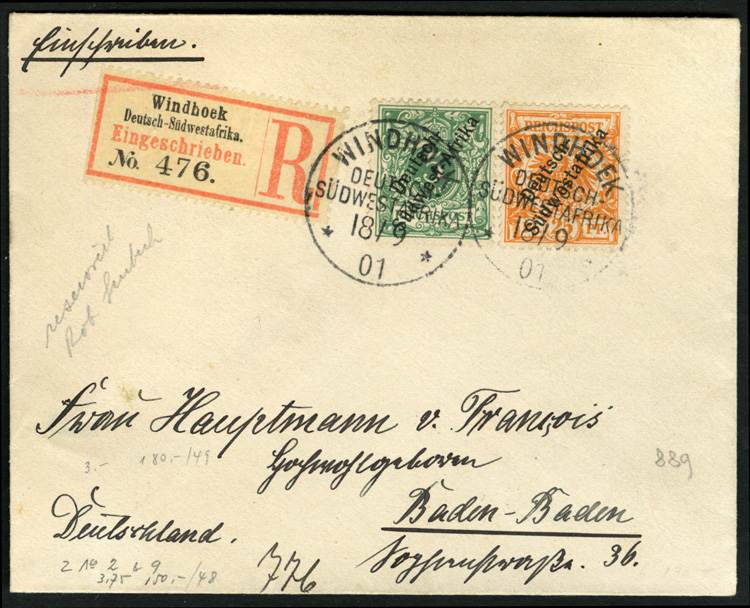 Einschreiben.
Windhoek
Deutsch-Südwestafrika.
Eingeschrieben.
No. 476.
R
WINDHOEK
DEUTSCH-
SÜDWESTAFRIKA
18/9
01
Deutsch-
Südwestafrika
WINDHOEK
DEUTSCH-
SÜDWESTAFRIKA
18/9
01
REICHSPOST
Deutsch-
Südwestafrika
25
reserviert
Rob
Frau Hauptmann v. François
3.- 180,-/49
Hochwohlgeboren
889
Baden-Baden
Deutschland.
Sophienstraße. 36.
2 9
3,75 150,-/48
776